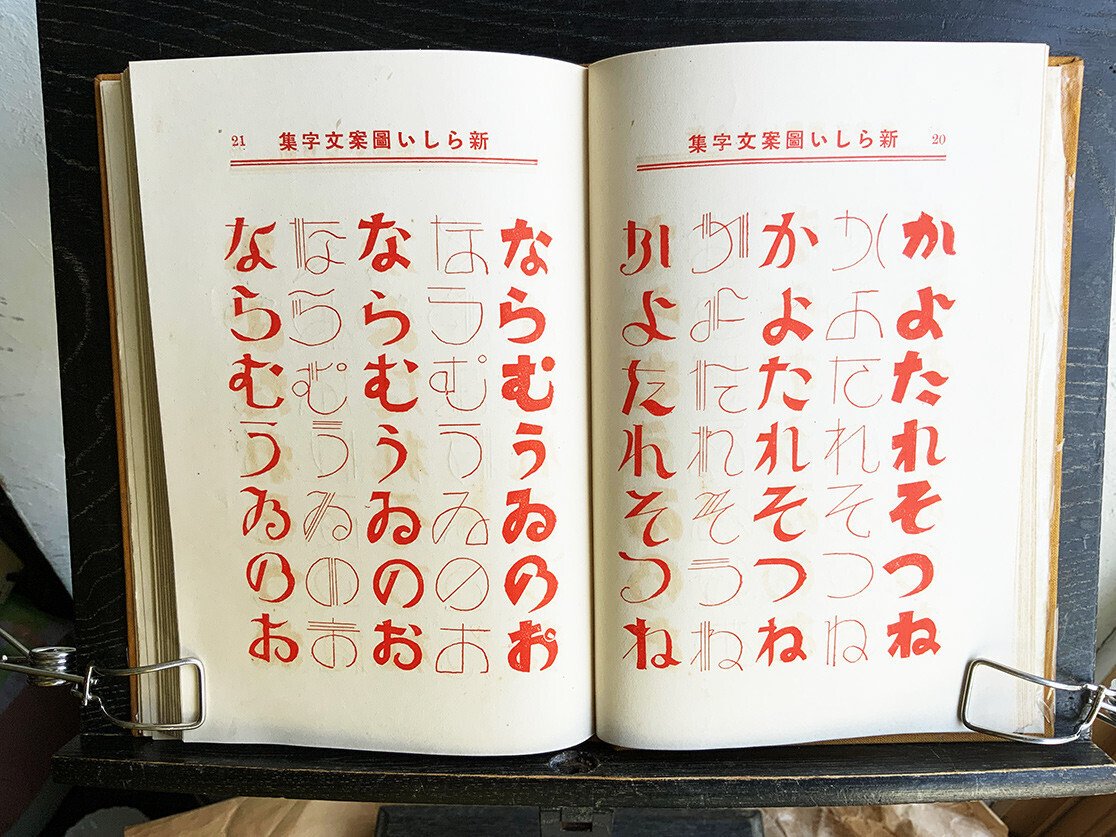 20 新らしい圖案文字集
かよたれそつね
かよたれそつね
かよたれそつね
かよたれそつね
かよたれそつね
新らしい圖案文字集 21
ならむうゐのお
ならむうゐのお
ならむうゐのお
ならむうゐのお
ならむうゐのお